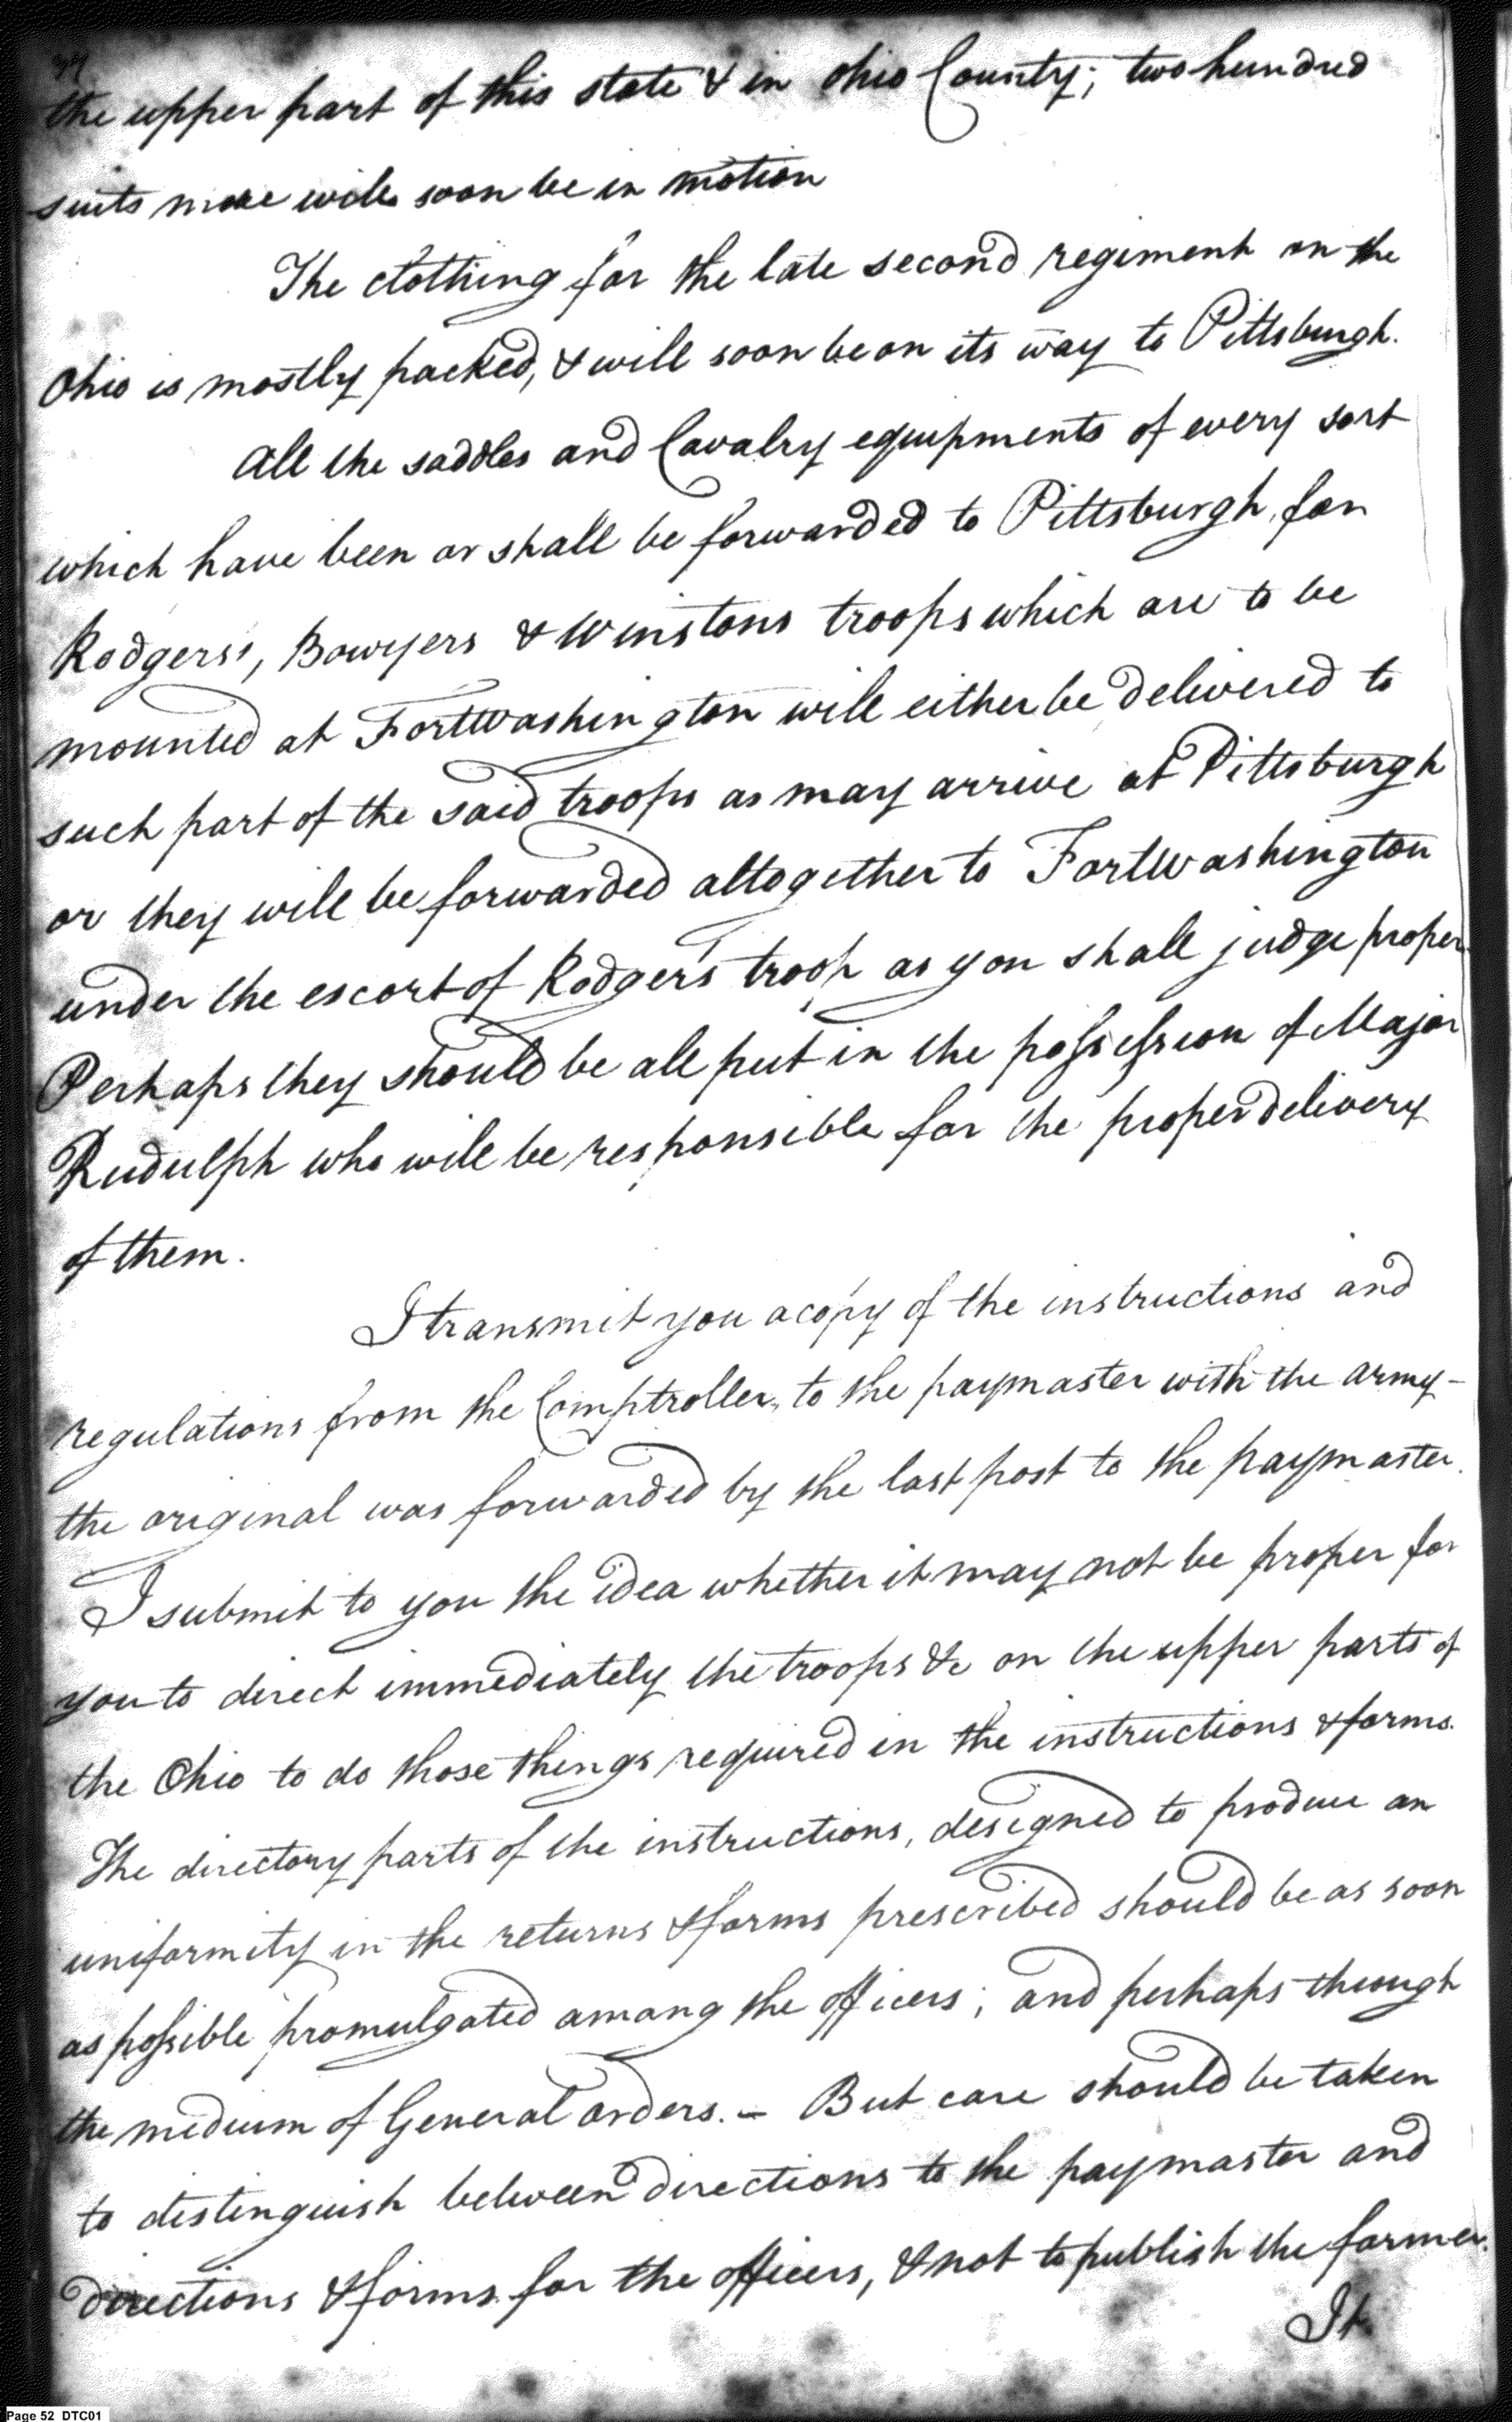 the upper part of this state & in Ohio County; two hundred
suits more will soon be in motion
The clothing for the late second regiment on the
Ohio is mostly packed, & will soon be on its way to Pittsburgh.
All the saddles and Cavalry equipments of every sort
which have been or shall be forwarded to Pittsburgh, for
Rodgers's, Bowyers & Winstons troops which are to be
mounted at Fort Washington will either be delivered to
such part of the said troops as may arrive at Pittsburgh
or they will be forwarded altogether to Fort Washington
under the escort of Rodgers troop as you shall judge proper
Perhaps they should be all put in the possession of Major
Rudulph who will be responsible for the proper delivery
of them.
I transmit you a copy of the instructions and
regulations from the Comptroller, to the paymaster with the army—
the original was forwarded by the last post to the paymaster.
I submit to you the idea whether it may not be proper for
you to direct immediately the troops &c on the upper parts of
the Ohio to do those things required in the instructions & forms.
The directory parts of the instructions, designed to produce an
uniformity in the returns & forms prescribed should be as soon
as possible promulgated among the officers; and perhaps through
the medium of General orders. — But care should be taken
to distinguish between directions to the paymaster and
directions & forms for the officers, & not to publish the former.
It
Page 52 DTC01